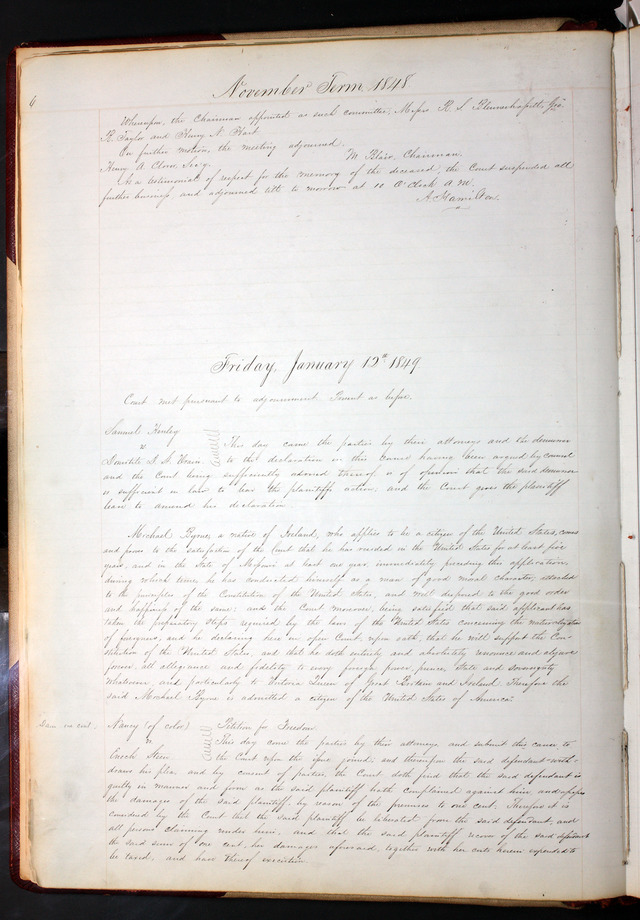 6
November Term 1848
Whereupon, the Chairman appointed as such committee, Messrs R. S. Blennerhassett, Geo
R. Taylor and Henry N. Hart.
On further motion, the meeting adjourned.
Henry A. Clover, Secy. M. Blair, Chairman.
As a testimonial of respect for the memory of the deceased, the Court suspended all
further business, and adjourned till to morrow at 10 O'Clock A.M.
A. Hamilton
Friday, January 12th 1849
Court met pursuant to adjournment. Present as before.
Samuel Henley
vs This day came the parties by their attorneys and the demurrer
to the declaration in this cause having been argued by counsel
and the Court being sufficiently advised thereof is of opinion that the said demurrer
is sufficient in law to bar the plaintiffs action, and the Court gives the plaintiff
leave to amend his declaration.
Michael Byrne, a native of Ireland, who applies to be a citizen of the United States, comes
and proves to the satisfaction of the Court that he has resided in the United States for at least five
years, and in the State of Missouri at least one year, immediately preceding this application,
during which time he has conducted himself as a man of good moral character, attached
to the principles of the Constitution of the United States, and well disposed to the good order
and happiness of the same; and the Court moreover, being satisfied that said applicant has
taken the preparatory steps required by the laws of the United States concerning the naturalization
of foreigners, and he declaring here in open Court, upon oath, that he will support the Con-
stitution of the United States, and that he doth entirely and absolutely renounce and abjure
forever, all allegiance and fidelity to every foreign power, prince, State and sovereignty
whatsoever and particularly to Victoria Queen of Great Britain and Ireland. Therefore the
said Michael Byrne is admitted a citizen of the United States of America.
Dam. one cent. Nancy (of color) Petition for Freedom
vs This day come the parties by their attorneys and submit this cause to
Enoch Steen the Court upon the issue joined, and thereupon the said defendant with-
draws his plea and by consent of parties, the Court doth find that the said defendant is
guilty in manner and form as the said plaintiff hath complained against him and assesses
the damages of the said plaintiff by reason of the premises to one cent. Therefore it is
considered by the Court that the said plaintiff be liberated from the said defendant, and
all persons claiming under him, and that the said plaintiff recover of the said defendant
the said sum of one cent, her damages aforesaid, together with her costs herein expended to
be taxed, and have thereof execution.